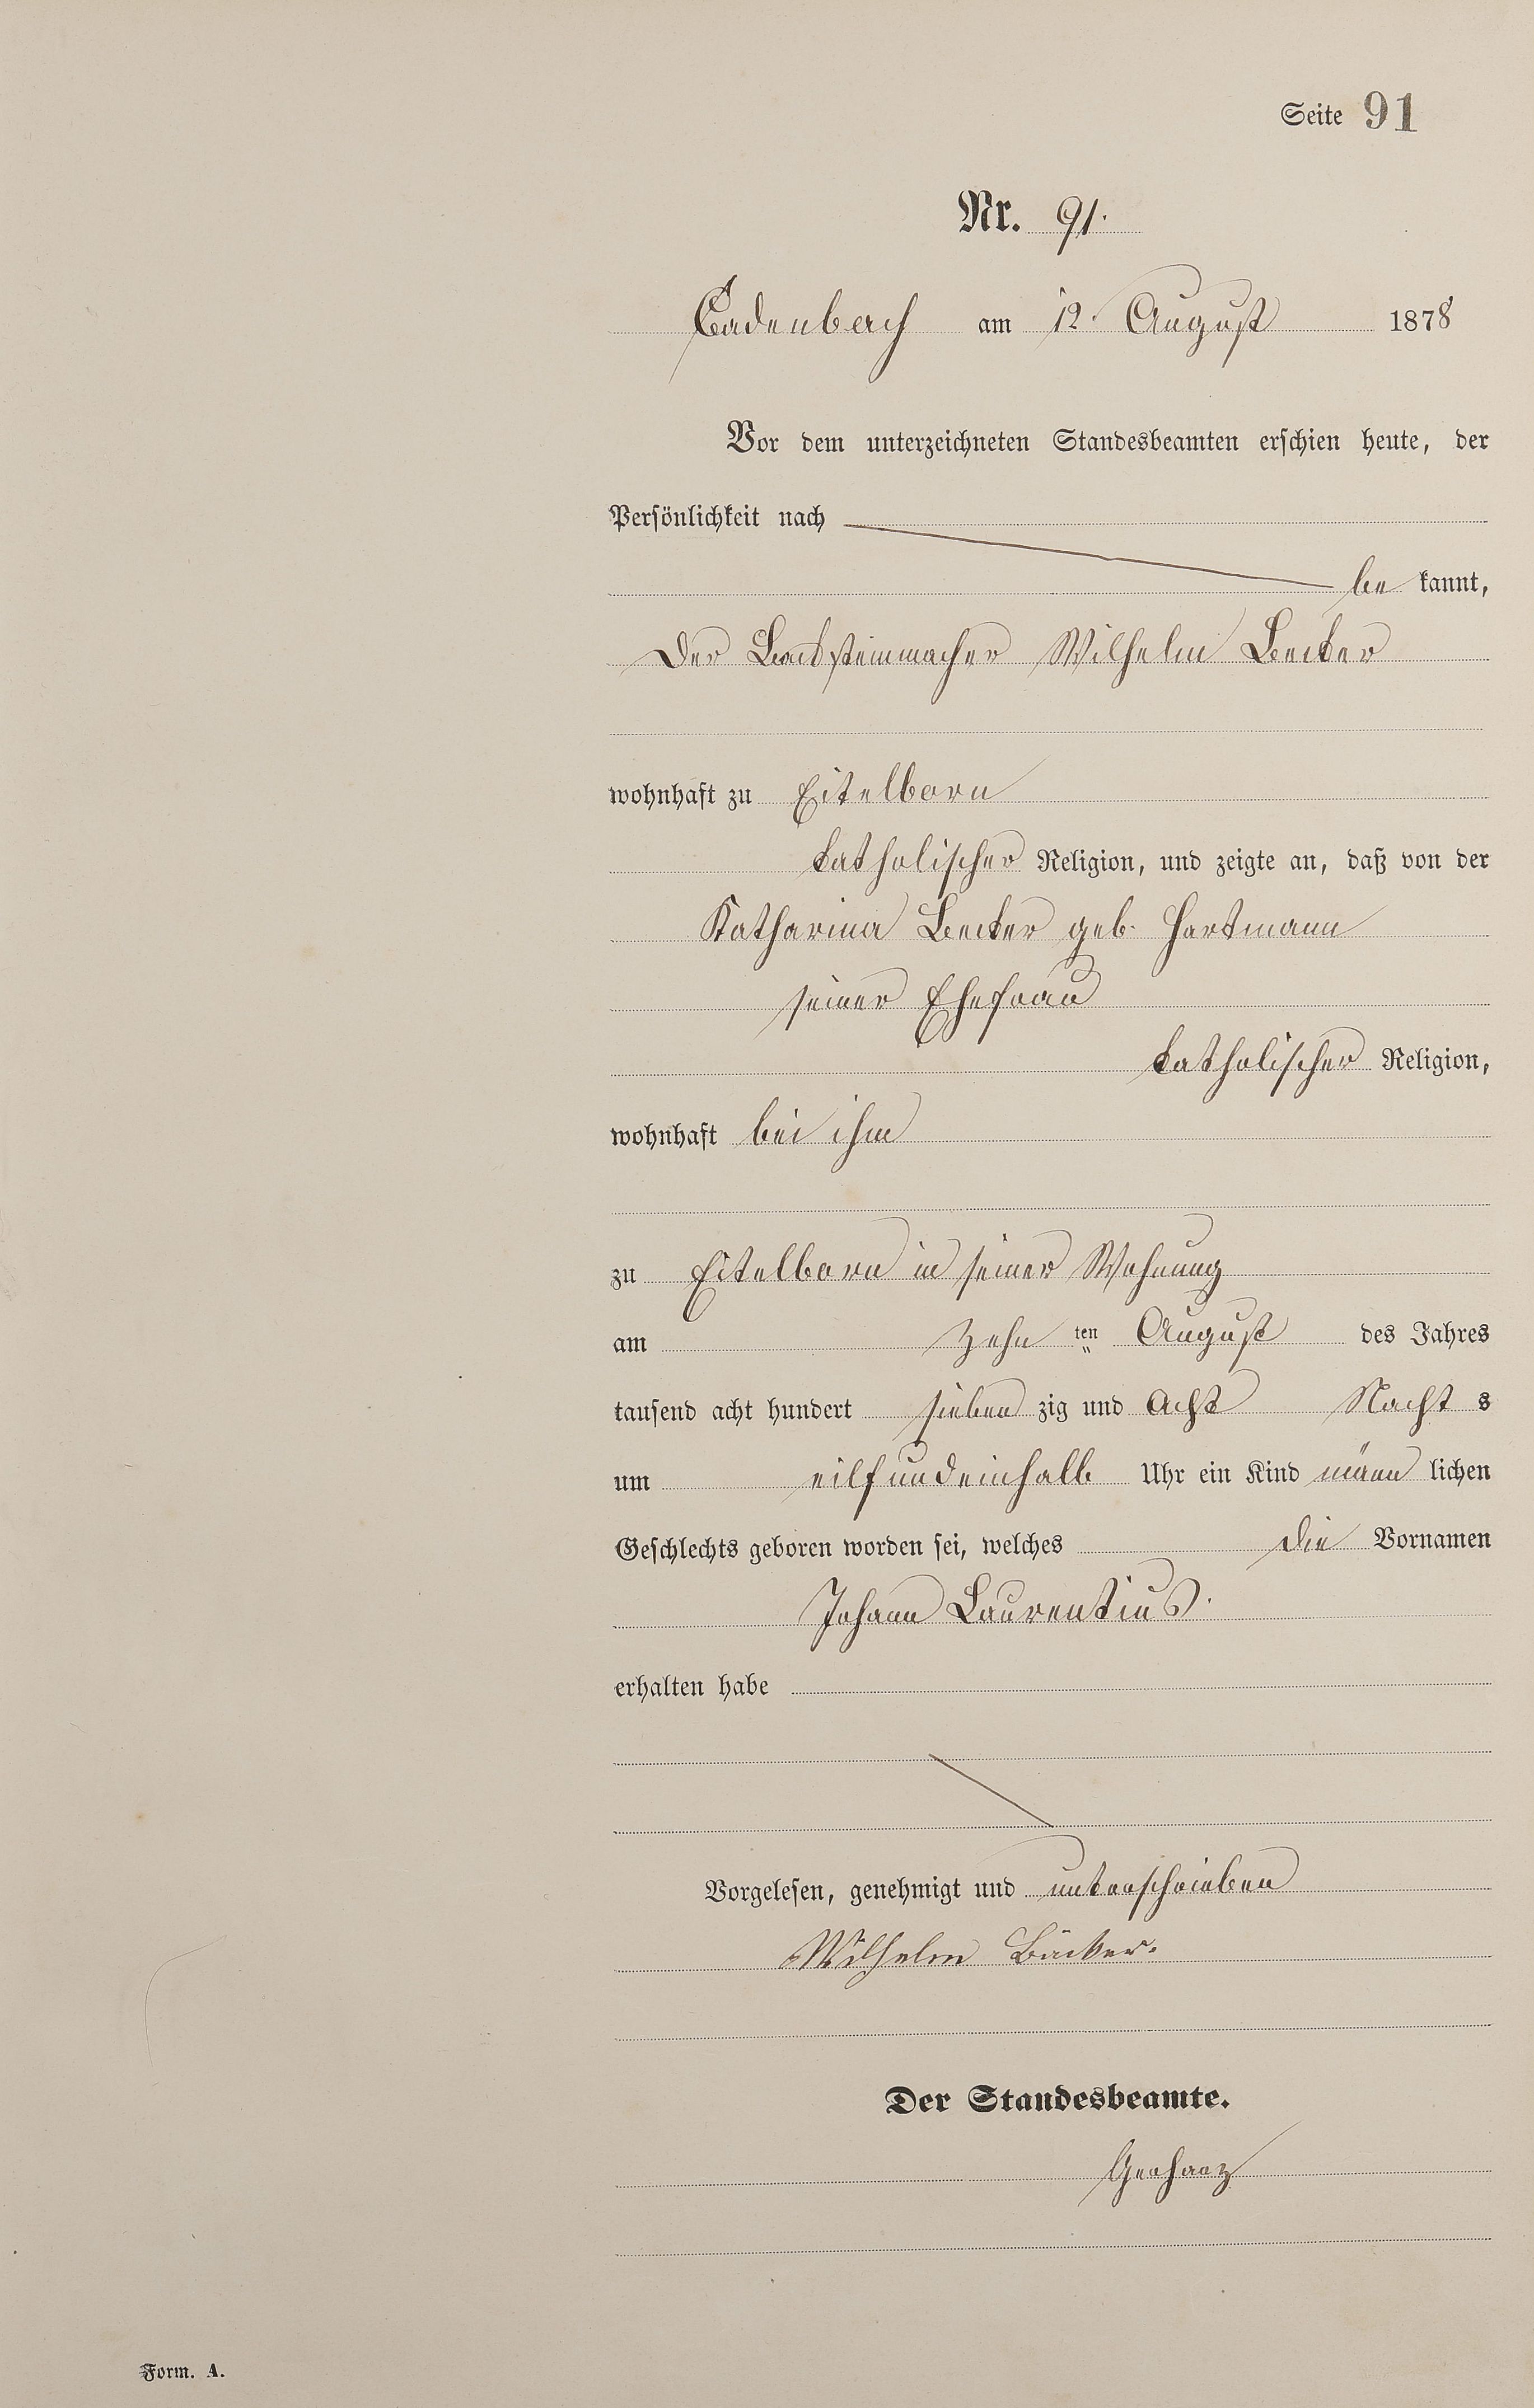 Seite 91
Nr. 91.
Cadenbach am 12. August 1878
Vor dem unterzeichneten Standesbeamten erschien heute, der
Persönlichkeit nach
be kannt,
der Backsteinmacher Wilhelm Becker
wohnhaft zu Eitelborn
katholischer Religion, und zeigte an, daß von der
Katharina Becker geb. Hartmann
seiner Ehefrau
katholischer Religion,
wohnhaft bei ihm
zu Eitelborn in seiner Wohnung
am zehn ten August des Jahres
tausend acht hundert sieben zig und Acht Nacht s
um eilfundeinhalb Uhr ein Kind männ lichen
Geschlechts geboren worden sei, welches die Vornamen
Johann Laurentius.
erhalten habe
Vorgelesen, genehmigt und unterschrieben
Wilhelm Bäcker.
Der Standesbeamte.
Gerharz
Form. A.